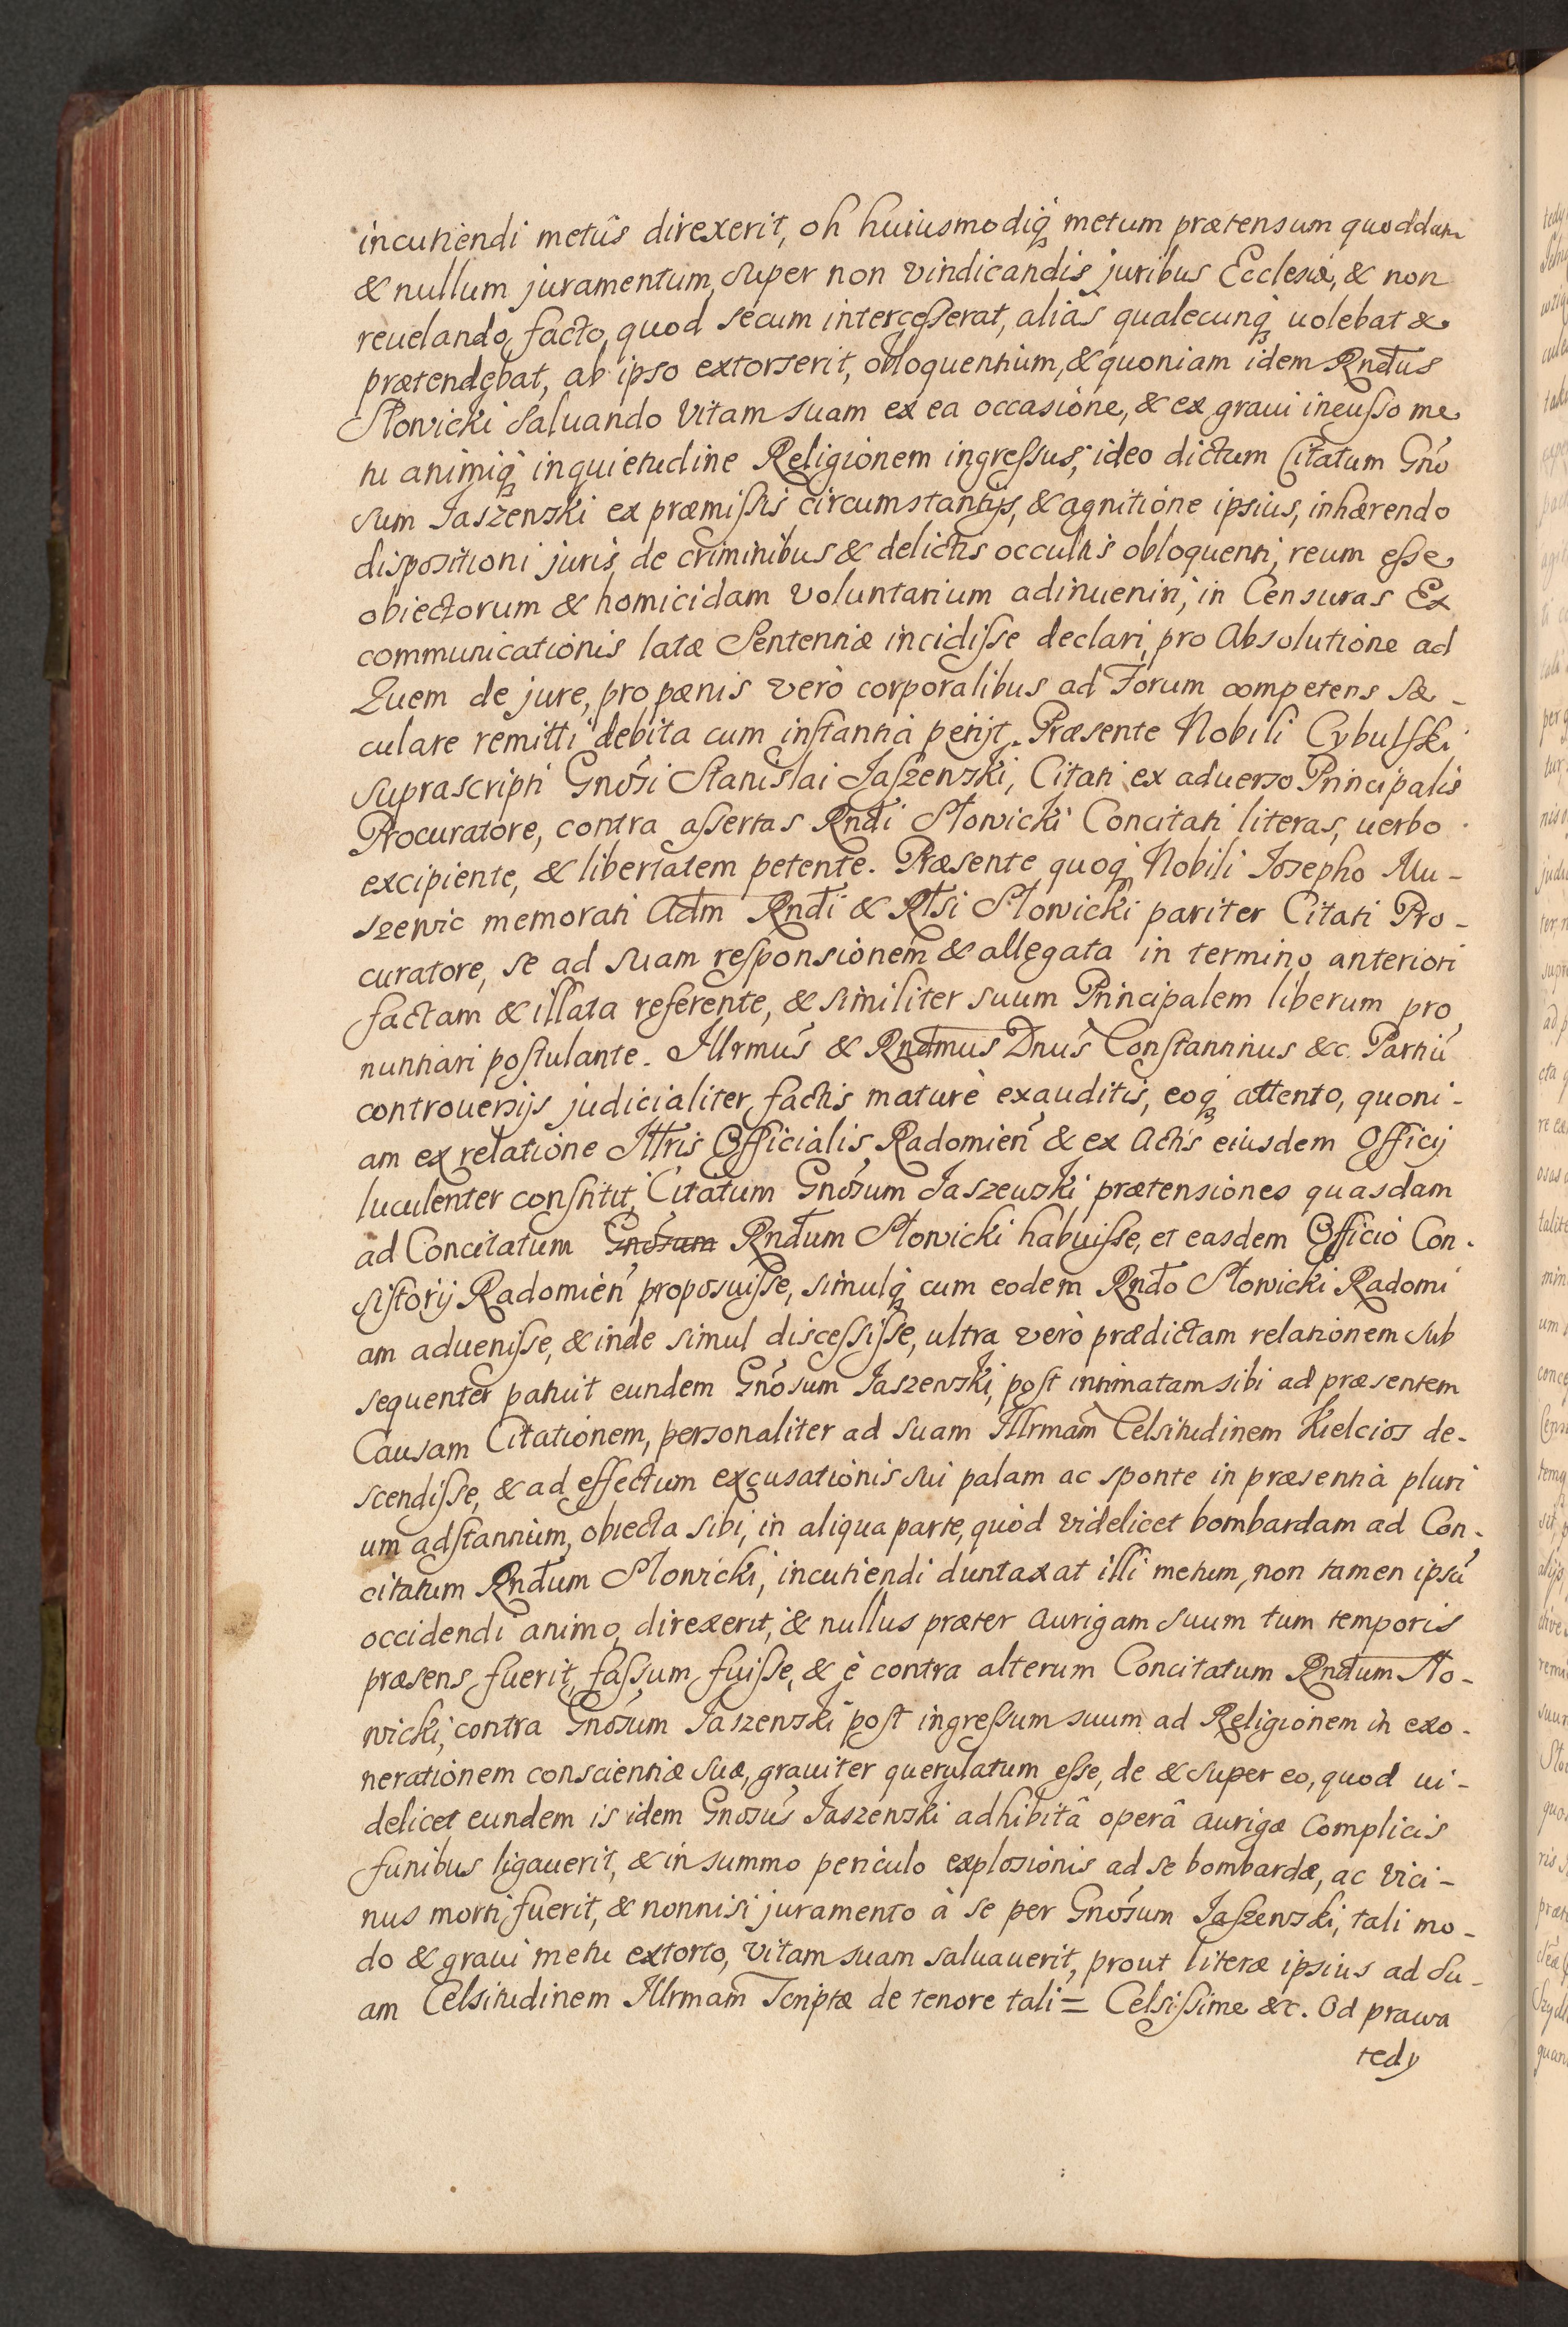 incutiendi metûs direxerit, ob huiusmodiq́ metum prætensum quoddam
& nullum juramentum, super non vindicandis juribus Ecclesiæ, & non
reuelando facto, quod secum intercesserat, alias qualecunq́ uolebat &
prætendebat, ab ipso extorserit, obloquentium, & quoniam idem Rndus
Słowicki Saluando Vitam suam ex ea occasione, & ex graui incusso me
tu animiq́ inquietudine Religionem ingressus, ideo dictum Citatum Gnó
sum Jaszewski ex præmissis circumstantijs, & agnitione ipsius, inhærendo
dispositioni juris de criminibus & delictis occultis obloquenti, reum esse
obiectorum & homicidam Voluntarium adinueniri, in Censuras Ex
communicationis latæ Sententiæ incidisse declari, pro Absolutione ad
Quem de jure, pro pœnis verò corporalibus ad Forum competens Sæ-
culare remitti debita cum instantia petijt. Præsente Nobili Cybulski
suprascripti Gnósi Stanislai Jaszewski, Citati ex aduerso Principalis
Procuratore, contra assertas Rndi Słowicki Concitati literas, uerbo
excipiente, & libertatem petente. Præsente quoq́ Nobili Josepho Mu-
szewic memorati Adm Rndi & Rlsi Słowicki pariter Citati Pro-
curatore, se ad suam responsionem & allegata in termino anteriori
factam & illata referente, & similiter suum Principalem liberum pro
nuntiari postulante. Illrmus & Rndmus Dnus Constantinus &c. Partiú
controuersijs judicialiter factis maturè exauditis, eoq́ attento, quoni-
am ex relatione Illris Officialis Radomień & ex Actis eiusdem Officij
luculenter constitit, Citatum Gnósum Jaszewski prætensiones quasdam
ad Concitatum Gnósum Rndum Słowicki habuisse, et easdem Officio Con-
sistorij Radomień proposuisse, simulq́ cum eodem Rndo Słowicki Radomi
am aduenisse, & inde simul discessisse, ultra verò prædictam relationem sub
sequenter patuit eundem Gnósum Jaszewski, post intimatam sibi ad præsentem
Causam Citationem, personaliter ad suam Illrmam Celsitudinem Kielcios de-
scendisse, & ad effectum excusationis sui palam ac sponte in præsentia pluri
um adstantium, obiecta sibi, in aliqua parte, quòd videlicet bombardam ad Con-
citatum Rndum Słowicki, incutiendi duntaxat illi metum, non tamen ipsú
occidendi animo, direxerit, & nullus præter aurigam suum tum temporis
præsens fuerit, fassum fuisse, & è contra alterum Concitatum Rndum Sło-
wicki, contra Gnósum Jaszewski post ingressum suum ad Religionem in exo-
nerationem conscientiæ suæ, grauiter querulatum esse, de & super eo, quod ui-
delicet eundem is idem Gnosús Jaszewski adhibitâ operâ aurigæ complicis
funibus ligauerit, & in summo periculo explosionis ad se bombardæ, ac vici-
nus morti fuerit, & nonnisi juramento à se per Gnósum Jaszewski, tali mo-
do & graui metu extorto, vitam suam saluauerit, prout literæ ipsius ad Su-
am Celsitudinem Illrmam Scriptæ de tenore tali = Celsissime &c. Od prawa
tedy